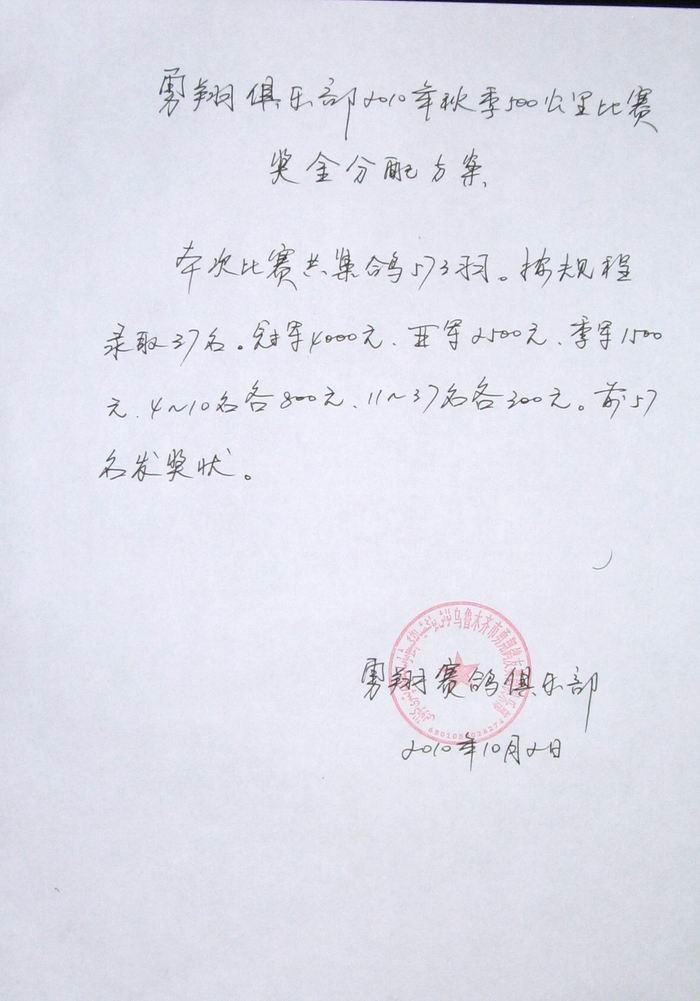 勇翔俱乐部2010年秋季500公里比赛
奖金分配方案
本次比赛共集鸽573羽。按规程
录取37名。冠军4000元、亚军2500元、季军1500
元、4~10名各800元、11~37名各300元。前57
名发奖状。
乌鲁木齐市勇翔
勇翔赛鸽俱乐部
2010年10月2日